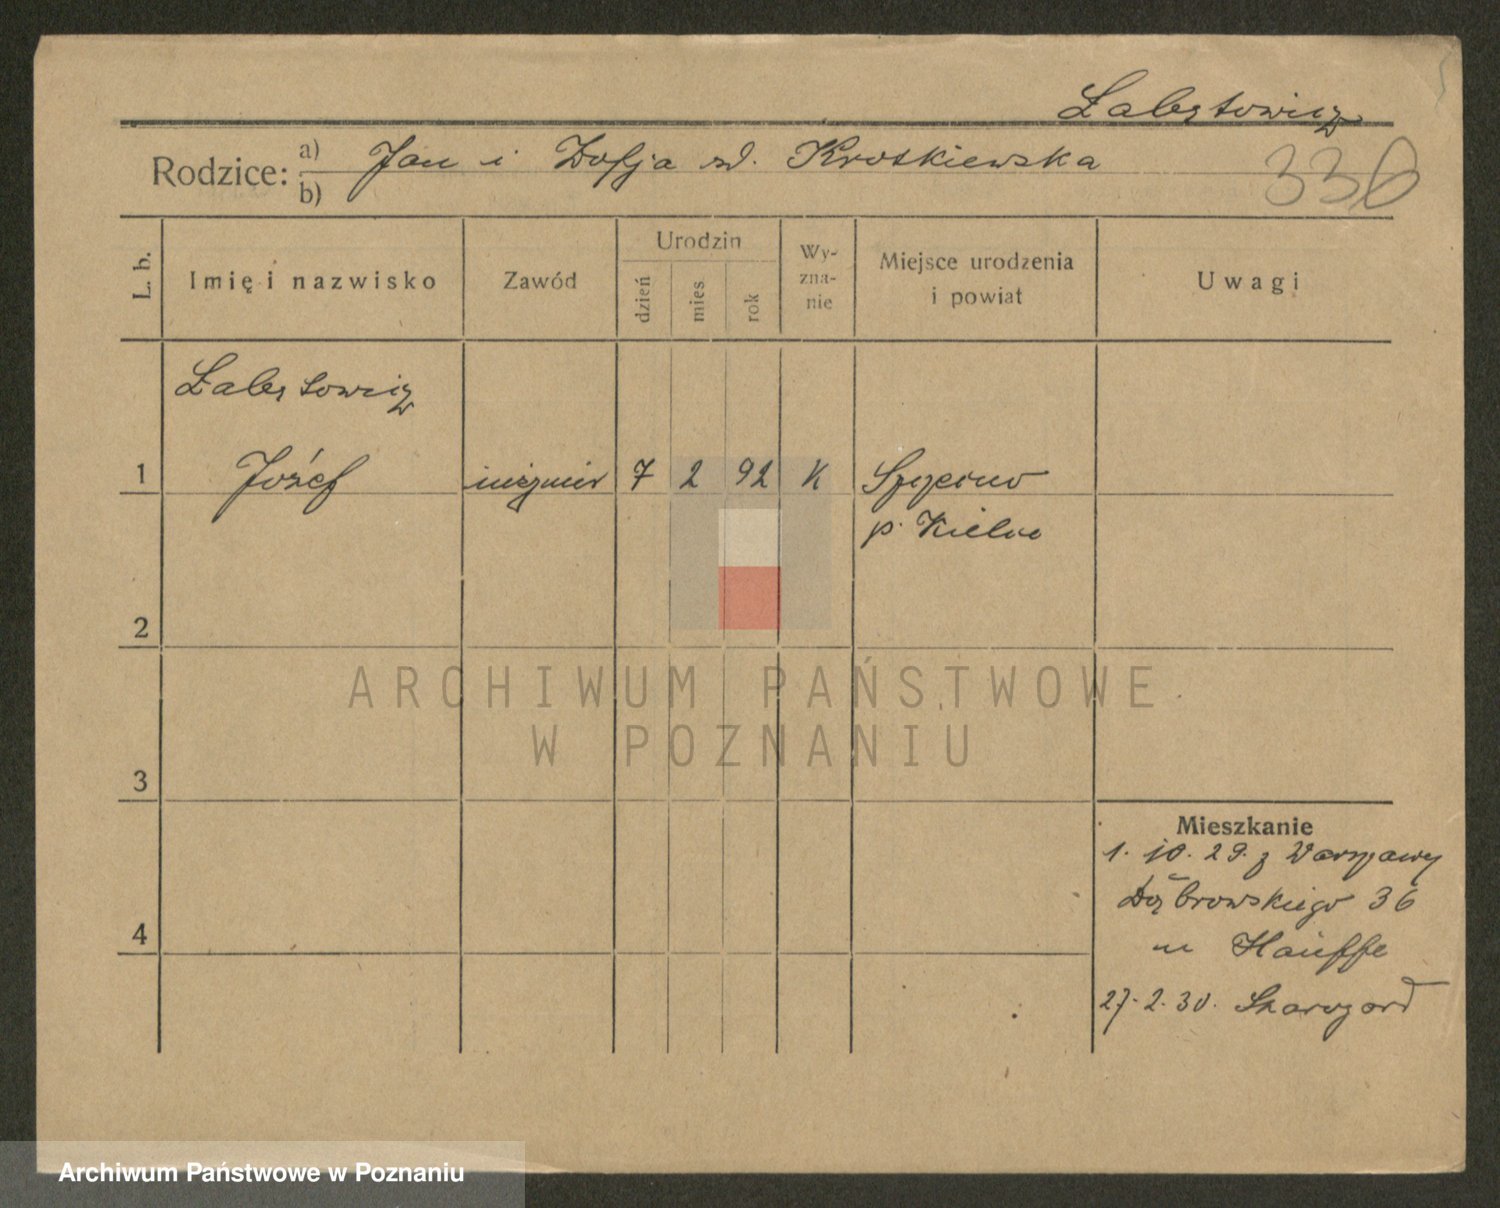 Łabętowicz
Rodzice: a) Jan i Zofja zd. Kroskiewska
b)
336
L. b.
Imię i nazwisko
Zawód
Urodzin
dzień
mies
rok
Wy-
zna-
nie
Miejsce urodzenia
i powiat
Uwagi
Łabętowicz
1 Józef inżynier 7 2 92 K
p. Kielce
2
ARCHIWUM PAŃSTWOWE
W POZNANIU
3
Mieszkanie
1. 10. 29. z Warszawy
Dąbrowskiego 36
4
u Hauffe
27. 2. 30. Starogard
Archiwum Państwowe w Poznaniu